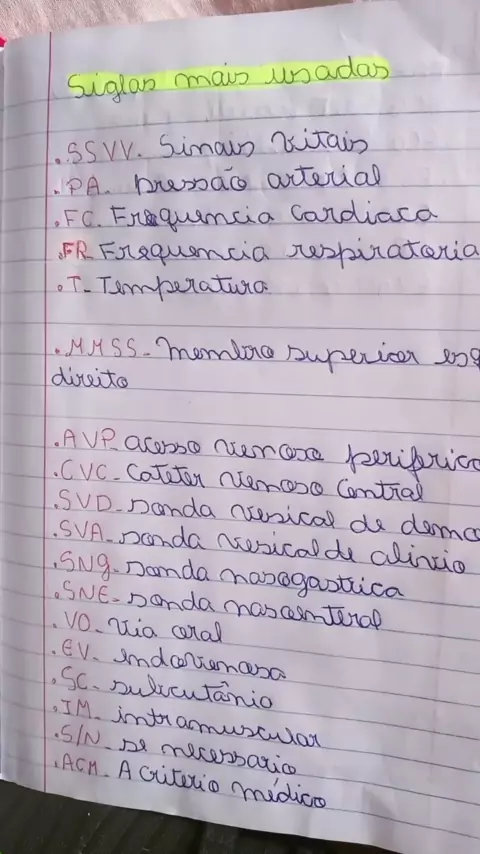 Siglas mais usadas
.SSVV. Sinais Vitais
.PA. pressão arterial
.FC. Frequencia Cardiaca
.FR- Frequencia respiratoria
.T- Temperatura
.MMSS- membro superior esq
direito
.AVP- acesso venoso periferico
.CVC- Cateter Venoso Central
.SVD- sonda vesical de demo
.SVA- sonda vesical de alivio
.SNg- sonda nasogastrica
.SNE- sonda nasoenteral
.VO- via oral
.EV- endovenosa
.SC- subcutânio
.IM- intramuscular
.S/N- se necessario
.ACM- A criterio médico